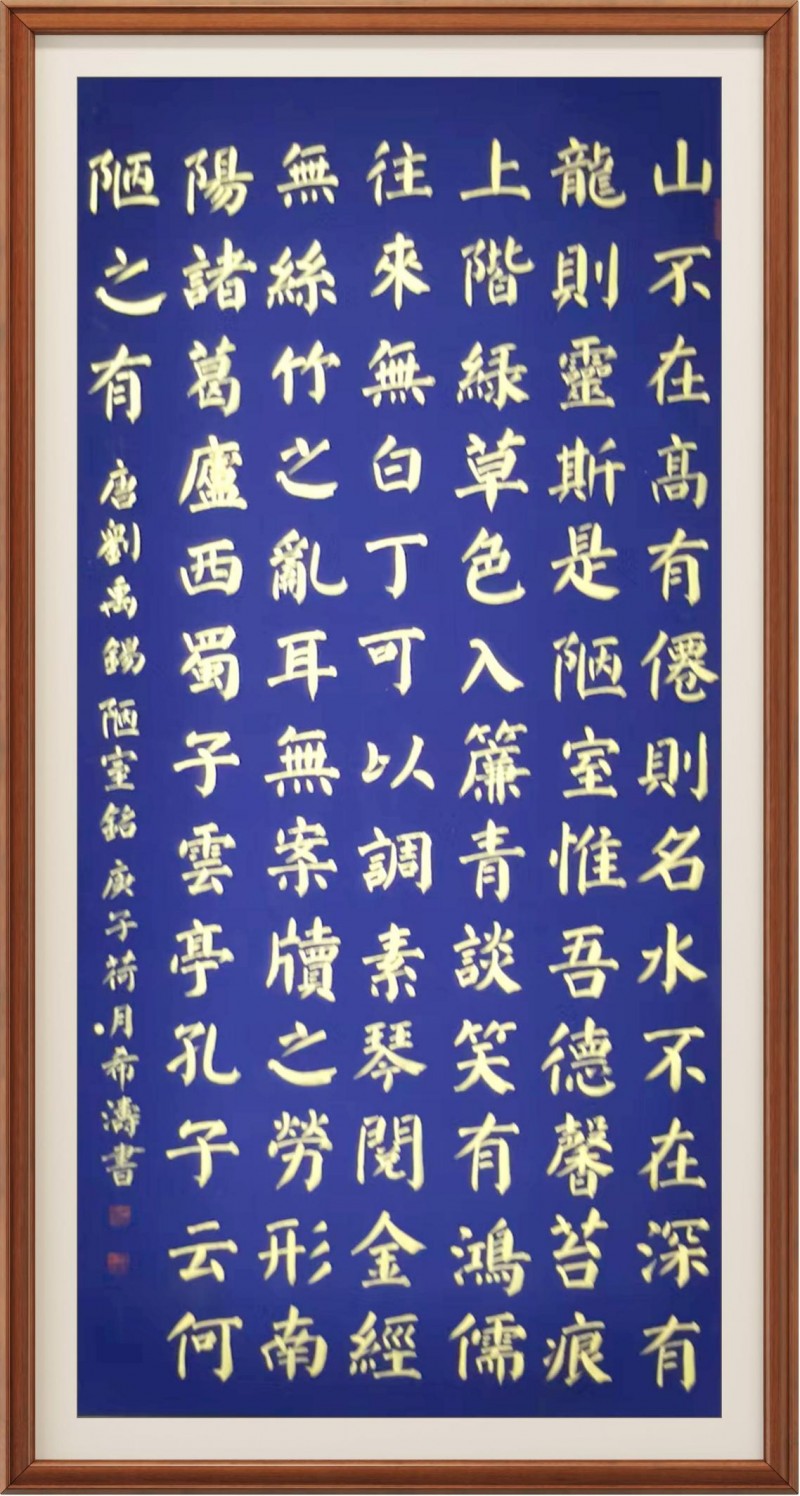 山不在高有僊則名水不在深有
龍則靈斯是陋室惟吾德馨苔痕
上階緑草色入簾青談笑有鴻儒
往來無白丁可以調素琴閱金經
無絲竹之亂耳無案牘之勞形南
陽諸葛廬西蜀子雲亭孔子云何
陋之有
唐劉禹錫陋室銘庚子荷月希濤書